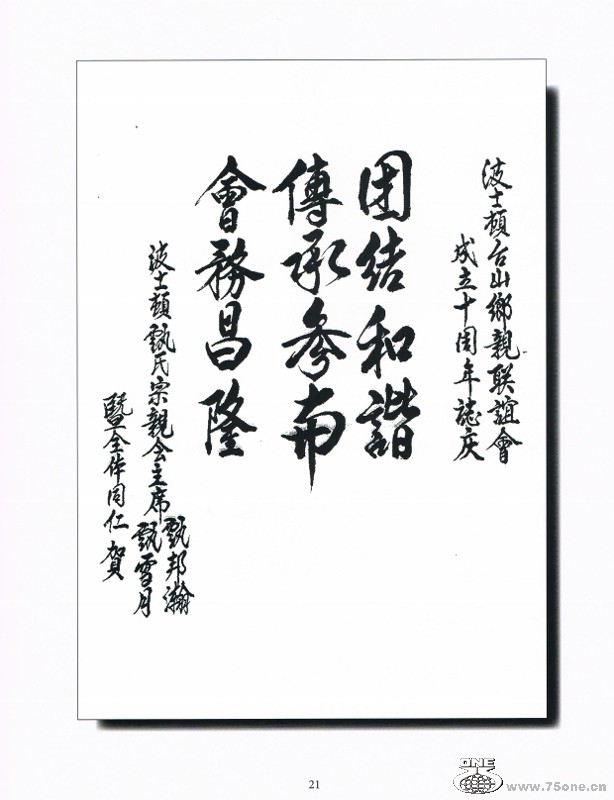 波士頓台山鄉親联誼會
成立十周年誌庆
团结和諧
傳承參
會務昌隆
波士頓甄氏宗親会主席
甄邦瀚
甄雪月
暨全体同仁 賀
21
ONE
www.75one.cn